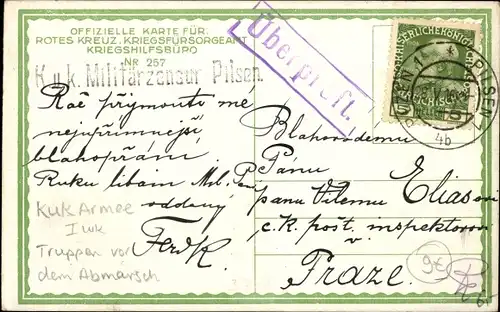 OFFIZIELLE KARTE FÜR:
ROTES KREUZ, KRIEGSFÜRSORGEAMT
KRIEGSHILFSBÜRO
NR 257
K.u.k. Militärzensur Pilsen.
Überprüft.
PILSEN 1
PLZEŇ 1
4b
Rač přijmouti mé
nejupřímnější
blahopřání.
Ruku líbám Mil. Paní
oddaný
Ferdk
Blahorodému
Pánu
panu Vilému Eliasovi
c.k. pošt. inspektorovi
v
Praze.
KuK Armee
I WK
Truppen vor
dem Abmarsch
9€